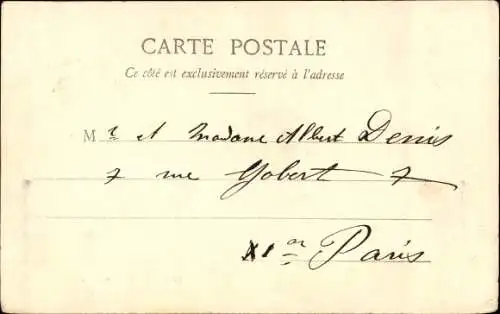 CARTE POSTALE
Ce côté est exclusivement réservé à l'adresse
Mr et Madame Albert Denis
7 rue Gobert 7
XI er Paris